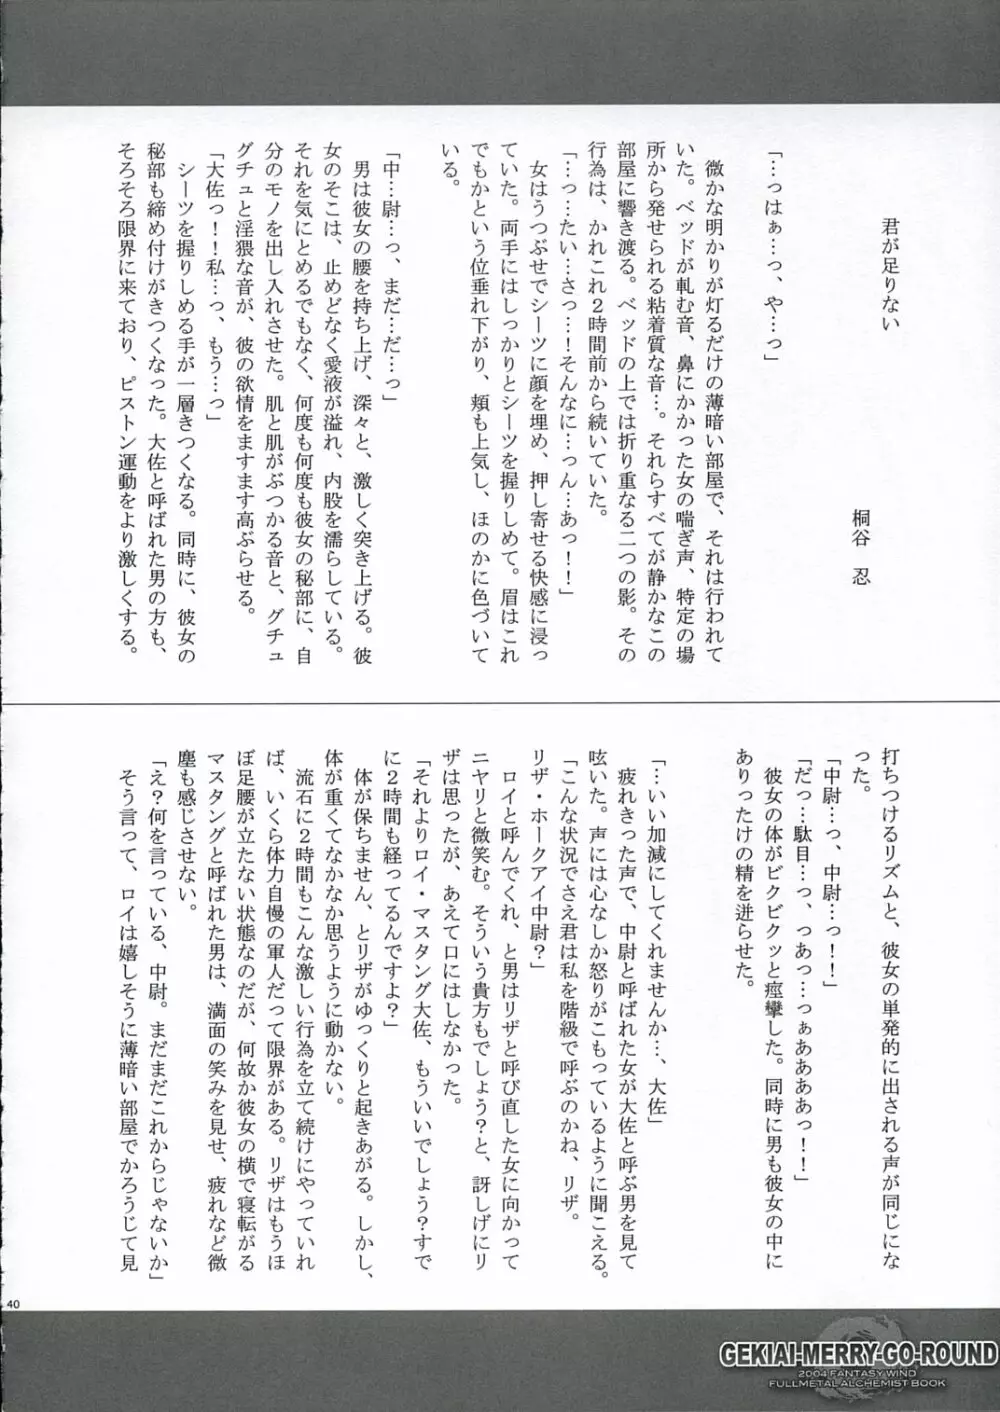 君が足りない
桐谷　忍
「…っはぁ…っ、や…っ」
微かな明かりが灯るだけの薄暗い部屋で、それは行われて
いた。ベッドが軋む音、鼻にかかった女の喘ぎ声、特定の場
所から発せられる粘着質な音…。それらすべてが静かなこの
部屋に響き渡る。ベッドの上では折り重なる二つの影。その
行為は、かれこれ２時間前から続いていた。
「…っ…たい…さっ…！そんなに…っん…あっ！！」
女はうつぶせでシーツに顔を埋め、押し寄せる快感に浸っ
ていた。両手にはしっかりとシーツを握りしめて。眉はこれ
でもかという位垂れ下がり、頬も上気し、ほのかに色づいて
いる。
「中…尉…っ、まだ…だ…っ」
男は彼女の腰を持ち上げ、深々と、激しく突き上げる。彼
女のそこは、止めどなく愛液が溢れ、内股を濡らしている。
それを気にとめるでもなく、何度も何度も彼女の秘部に、自
分のモノを出し入れさせた。肌と肌がぶつかる音と、グチュ
グチュと淫猥な音が、彼の欲情をますます高ぶらせる。
「大佐っ！！私…っ、もう…っ」
シーツを握りしめる手が一層きつくなる。同時に、彼女の
秘部も締め付けがきつくなった。大佐と呼ばれた男の方も、
そろそろ限界に来ており、ピストン運動をより激しくする。
打ちつけるリズムと、彼女の単発的に出される声が同じにな
った。
「中尉…っ、中尉…っ！」
「だっ…駄目…っ、っあっ…っぁああああっ！！」
彼女の体がビクビクッと痙攣した。同時に男も彼女の中に
ありったけの精を迸らせた。
「…いい加減にしてくれませんか…、大佐」
疲れきった声で、中尉と呼ばれた女が大佐と呼ぶ男を見て
呟いた。声には心なしか怒りがこもっているように聞こえる。
「こんな状況でさえ君は私を階級で呼ぶのかね、リザ。
リザ・ホークアイ中尉？」
ロイと呼んでくれ、と男はリザと呼び直した女に向かって
ニヤリと微笑む。そういう貴方もでしょう？と、訝しげにリ
ザは思ったが、あえて口にはしなかった。
「それよりロイ・マスタング大佐、もういいでしょう？すで
に２時間も経ってるんですよ？」
体が保ちません、とリザがゆっくりと起きあがる。しかし、
体が重くてなかなか思うように動かない。
流石に２時間もこんな激しい行為を立て続けにやっていれ
ば、いくら体力自慢の軍人だって限界がある。リザはもうほ
ぼ足腰が立たない状態なのだが、何故か彼女の横で寝転がる
マスタングと呼ばれた男は、満面の笑みを見せ、疲れなど微
塵も感じさせない。
「え？何を言っている、中尉。まだまだこれからじゃないか」
そう言って、ロイは嬉しそうに薄暗い部屋でかろうじて見
40
GEKIAI-MERRY-GO-ROUND
2004 FANTASY WIND
FULLMETAL ALCHEMIST BOOK